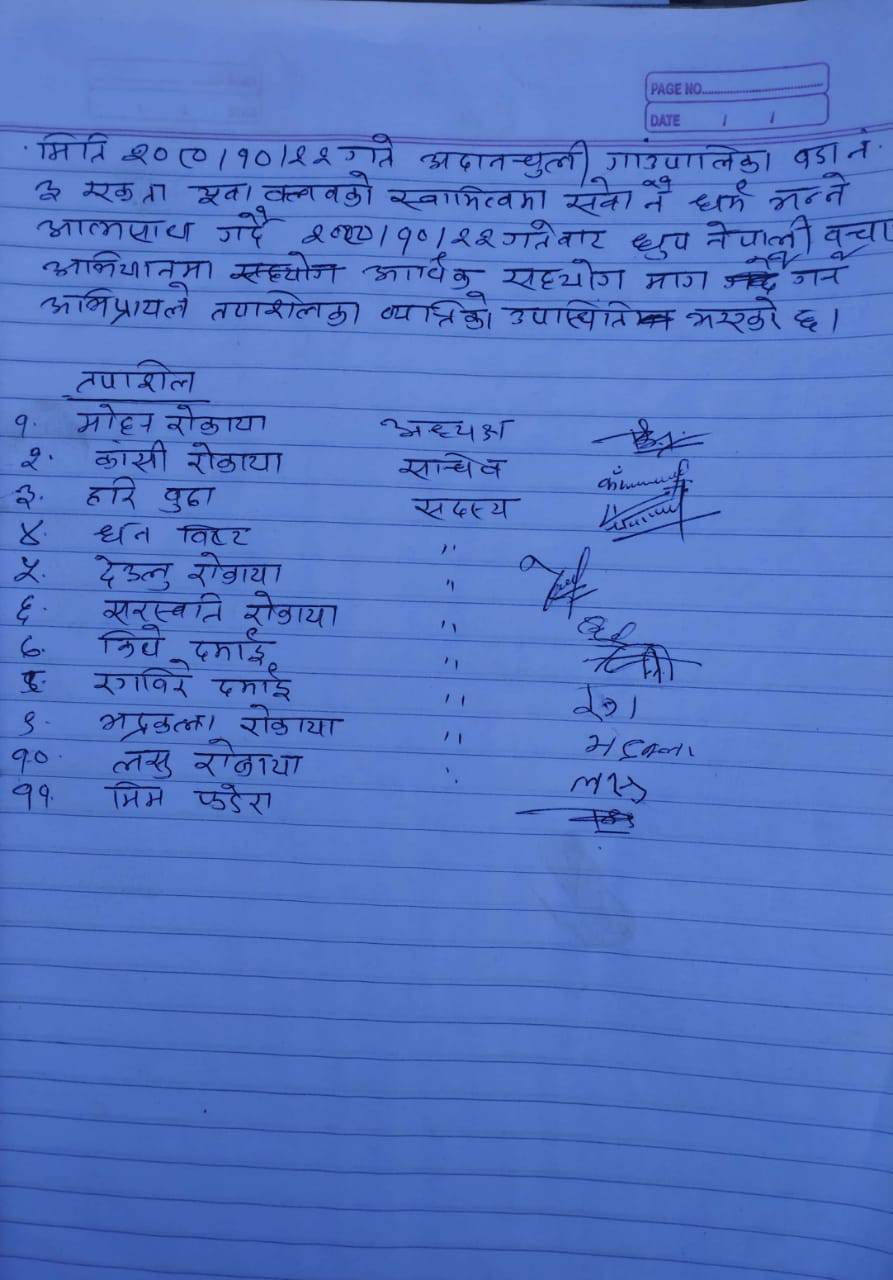 PAGE NO.
DATE / /
मिति २०८०/१०/२२ गते अदानचुली गाउपालिका वडा नं
३ एकता युवा क्लवको स्वामित्वमा सेवा नै धर्म भन्ने
आत्मसाथ गर्दै २०८०/१०/२२ गतेवाट ध्रुप नेपाली वचाऔ
अभियानमा आर्थिक सहयोग माग गर्ने
अभिप्रायले तपाशिलका व्यक्तिको उपास्थिति भएको छ।
तपाशिल
१. मोहन रोकाया अध्यक्ष
२. कासी रोकाया साचिव
३. हरि वुढा सदस्य
४ धन विष्ट "
५. देउलु रोकाया "
६. सरस्वति रोकाया "
७. दमाई "
८. रगविरे दमाई "
९. भद्रकला रोकाया " भद्रकला
१०. लसु रोकाया लसु
११. मिम फडेरा